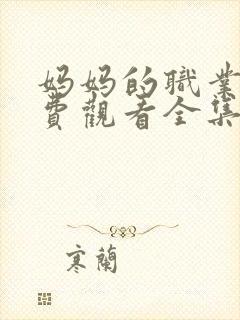 妈妈的職業
費觀看全集
寒蘭